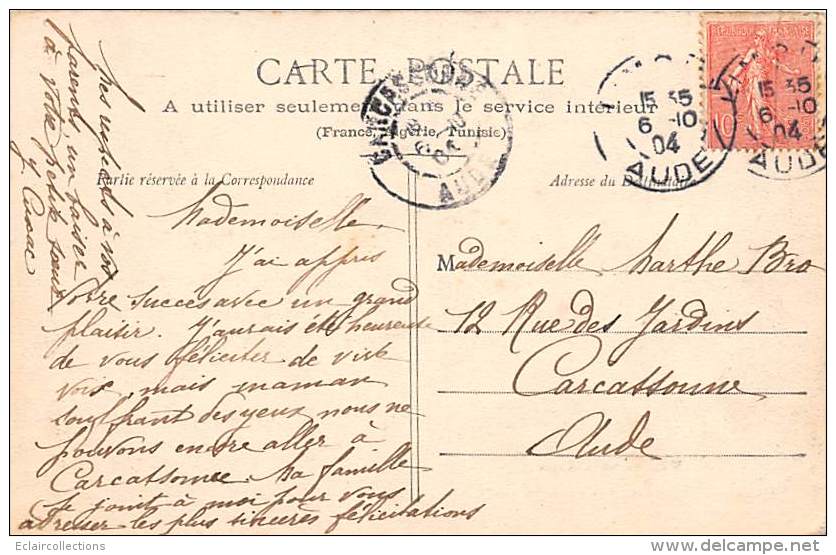 CARTE POSTALE
A utiliser seulement dans le service intérieur
(France, Algérie, Tunisie)
Partie réservée à la Correspondance
Adresse du Destinataire
CARCASSONNE
AUDE
15 35
6 -10
04
AUDE
15 35
6 -10
04
AUDE
Mademoiselle
J'ai appris
votre succès avec un grand
plaisir. J'aurais été heureuse
de vous féliciter de vive
voix, mais maman
souffrant des yeux nous ne
pouvons encore aller à
Carcassonne. Ma famille
se joint à moi pour vous
adresser les plus sincères félicitations
Mes respects à vos
parents un baiser
à votre petite sœur
Mademoiselle Marthe Bro
12 Rue des Jardins
Carcassonne
Aude
Eclaircollections
www.delcampe.net